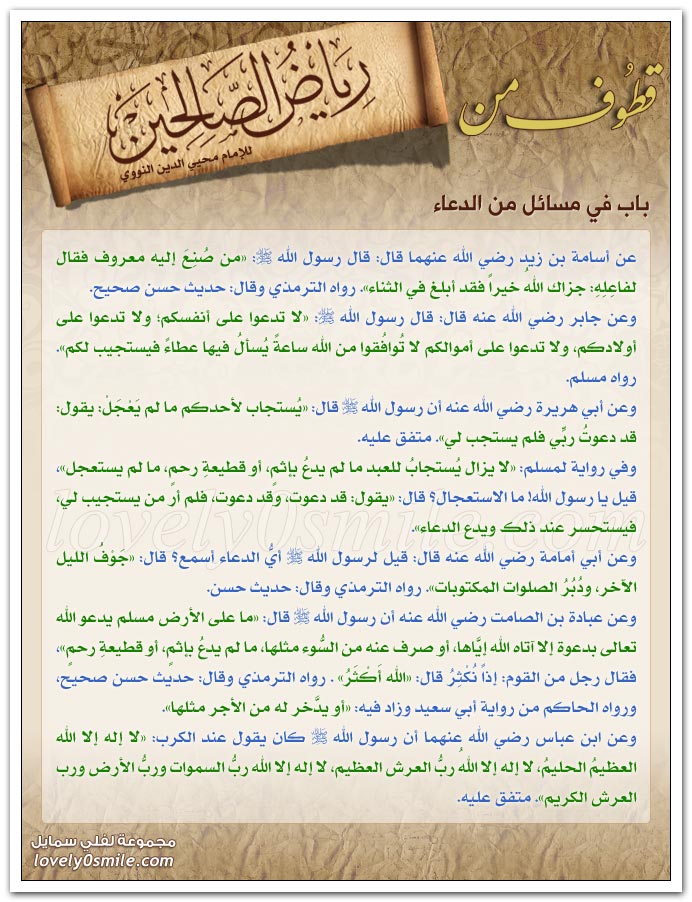 قطوف من
رِيَاضُ الصَّالِحِينَ
للإمام محيي الدين النووي
باب في مسائل من الدعاء
عن أسامة بن زيد رضي الله عنهما قال: قال رسول الله ﷺ: «من صُنِعَ إليه معروف فقال
لفاعِلِهِ: جزاك اللهُ خيراً فقد أبلغَ في الثناء». رواه الترمذي وقال: حديث حسن صحيح.
وعن جابر رضي الله عنه قال: قال رسول الله ﷺ: «لا تدعوا على أنفسكم؛ ولا تدعوا على
أولادكم، ولا تدعوا على أموالكم لا تُوافُقوا من الله ساعةً يُسألُ فيها عطاءً فيستجيب لكم».
رواه مسلم.
وعن أبي هريرة رضي الله عنه أن رسول الله ﷺ قال: «يُستجاب لأحدكم ما لم يَعْجَلْ: يقول:
قد دعوتُ ربِّي فلم يستجب لي». متفق عليه.
وفي رواية لمسلم: «لا يزال يُستجابُ للعبد ما لم يدعُ بإثمٍ، أو قطيعةِ رحمٍ، ما لم يستعجل»،
قيل يا رسول الله! ما الاستعجال؟ قال: «يقول: قد دعوت، وَقد دعوت، فلم أرَ من يستجيب لي،
فيستحسر عند ذلك ويدع الدعاء».
وعن أبي أمامة رضي الله عنه قال: قيل لرسول الله ﷺ أيُّ الدعاء أسمع؟ قال: «جَوْفُ الليل
الآخر، ودُبُرُ الصلوات المكتوبات». رواه الترمذي وقال: حديث حسن.
وعن عبادة بن الصامت رضي الله عنه أن رسول الله ﷺ قال: «ما على الأرض مسلم يدعو الله
تعالى بدعوة إلا آتاه الله إيَّاها، أو صرف عنه من السُّوء مثلها، ما لم يدعُ بإثمٍ، أو قطيعةِ رحمٍ»،
فقال رجل من القوم: إذاً نُكْثِرُ قال: «الله أَكْثَرُ» . رواه الترمذي وقال: حديث حسن صحيح،
ورواه الحاكم من رواية أبي سعيد وزاد فيه: «أو يدَّخر له من الأجر مثلها».
وعن ابن عباس رضي الله عنهما أن رسول الله ﷺ كان يقول عند الكرب: «لا إله إلا الله
العظيمُ الحليمُ، لا إله إلا اللهُ ربُّ العرش العظيم، لا إله إلا الله ربُّ السموات وربُّ الأرض ورب
العرش الكريم». متفق عليه.
lovely0smile.com
مجموعة لفلي سمايل
lovely0smile.com